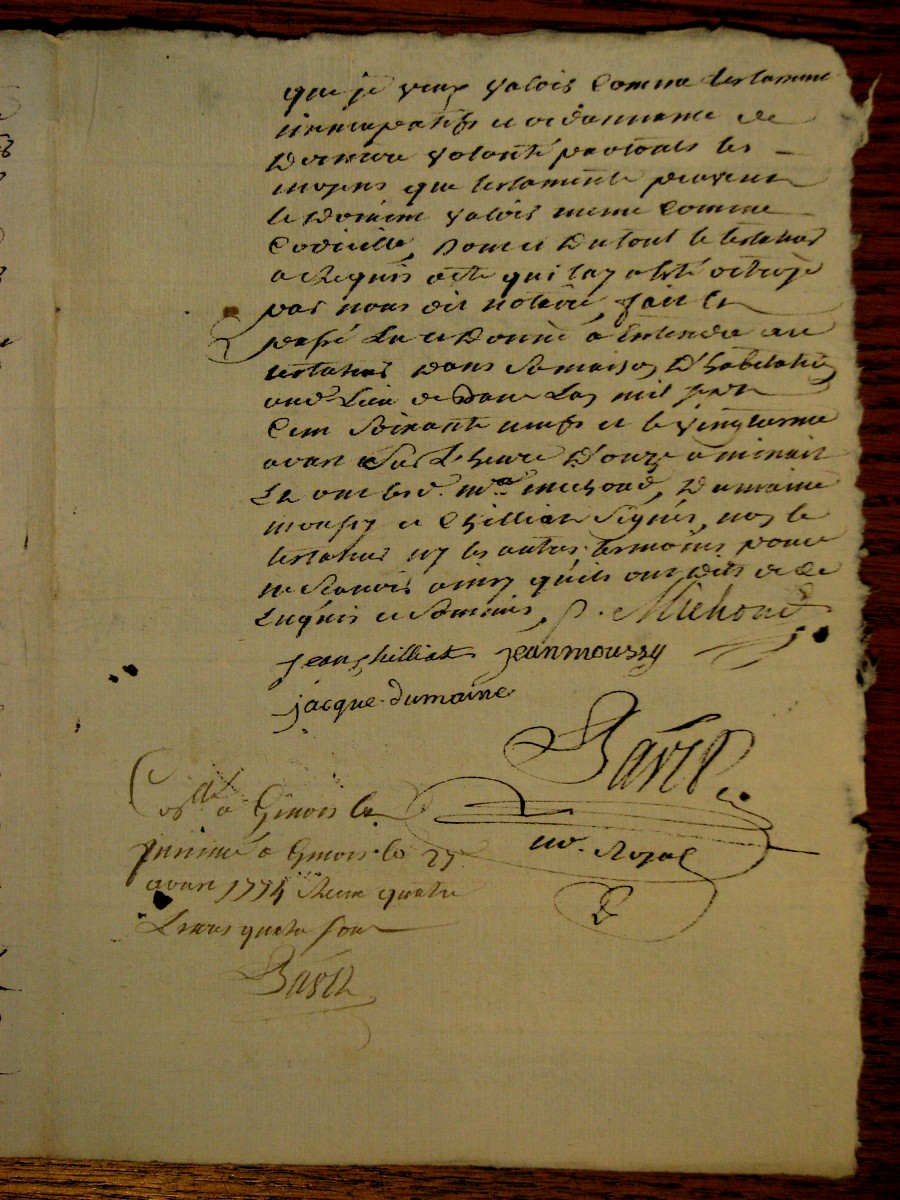 que je veux valois comme testament
nuncupatifs et ordonnance de
Derniere volonté par touts les
moyens que testaments peuvent
le Doivent valois meme comme
Codicille, Dont et Du tout le testateur
a Requis acte qui luy a été octroyé
par nous dit notaire, fait et
passé Lu et Donné a Entendre au
testateur dans Sa maison D'habitation
aud. Lieu de Lan mil sept
Cent Soixante neufs et le vingt
avant Sur L'heure D'onze a minuit
En ont led. Me michoud, Dumaine
moussy et Chilliat Signés, non le
testateur ny les autres temoins pour
ne Scavois ainsy qu'ils ont dits de ce
Enquis et Sommés, p. Michoud
jean chilliat jean moussy
jacque dumaine
Bavet
no. Royal
Collé a
le 27
avril 1774 Receu quatre
Livres quatre sous
Bavet